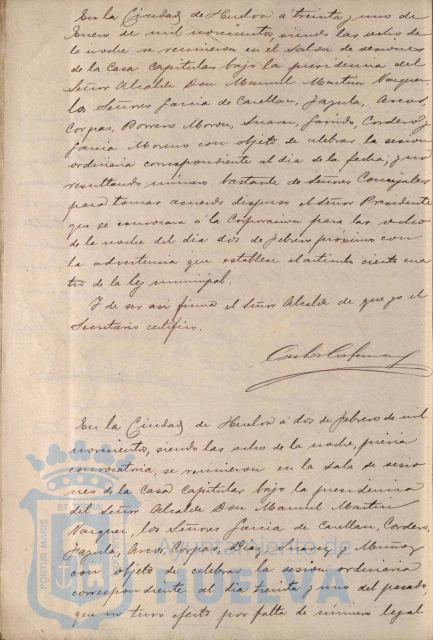 En la Ciudad de Huelva á treinta y uno de
Enero de mil novecientos, siendo las ocho de
la noche se reunieron en el Salon de sesiones
de la Casa Capitular bajo la presidencia del
Señor Alcalde Don Manuel Martin Vazquez
los Señores Garcia de Castellan, Jazula, Arcos,
Corpas, Borrero Morón, Suarez, Garrido, Cordero y
Garcia Moreno con objeto de celebrar la sesion
ordinaria correspondiente al dia de la fecha; y no
resultando número bastante de Señores Concejales
para tomar acuerdo dispuso el Señor Presidente
que se convocara á la Corporacion para las ocho
de la noche del dia dos de Febrero próximo con
la advertencia que establece el articulo ciento cua
tro de la ley municipal.
Y de ser asi firma el Señor Alcalde de que yo el
Secretario certifico.
En la Ciudad de Huelva á dos de Febrero de mil
novecientos, siendo las ocho de la noche, prévia
convocatoria, se reunieron en la sala de sesio
nes de la Casa Capitular bajo la presidencia
del Señor Alcalde Don Manuel Martin
Vazquez, los Señores Garcia de Castellan, Cordero,
Jazula, Arcos, Corpas, Diaz, Suarez y Muñoz
con objeto de celebrar la sesion ordinaria
correspondiente al dia treinta y uno del pasado,
que no tuvo efecto por falta de número legal
PORTUS MARIS ET
Ayuntamiento de
HUELVA